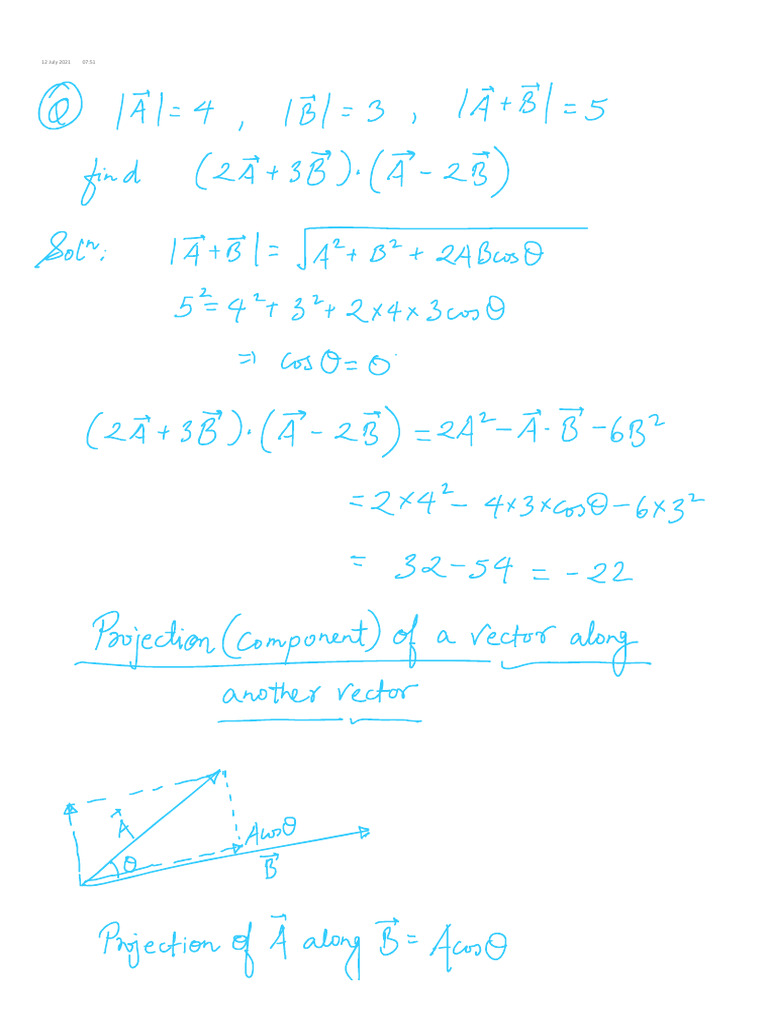 12 July 2021 07:51
Q |A⃗| = 4 , |B⃗| = 3 , |A⃗ + B⃗| = 5
find (2A⃗ + 3B⃗) · (A⃗ - 2B⃗)
Solⁿ: |A⃗ + B⃗| = √(A² + B² + 2ABcosθ)
5² = 4² + 3² + 2×4×3cosθ
⇒ cosθ = 0
(2A⃗ + 3B⃗) · (A⃗ - 2B⃗) = 2A² - A⃗ · B⃗ - 6B²
= 2×4² - 4×3×cosθ - 6×3²
= 32 - 54 = -22
Projection (component) of a vector along
another vector
A⃗
Acosθ
θ
B⃗
Projection of A⃗ along B⃗ = Acosθ